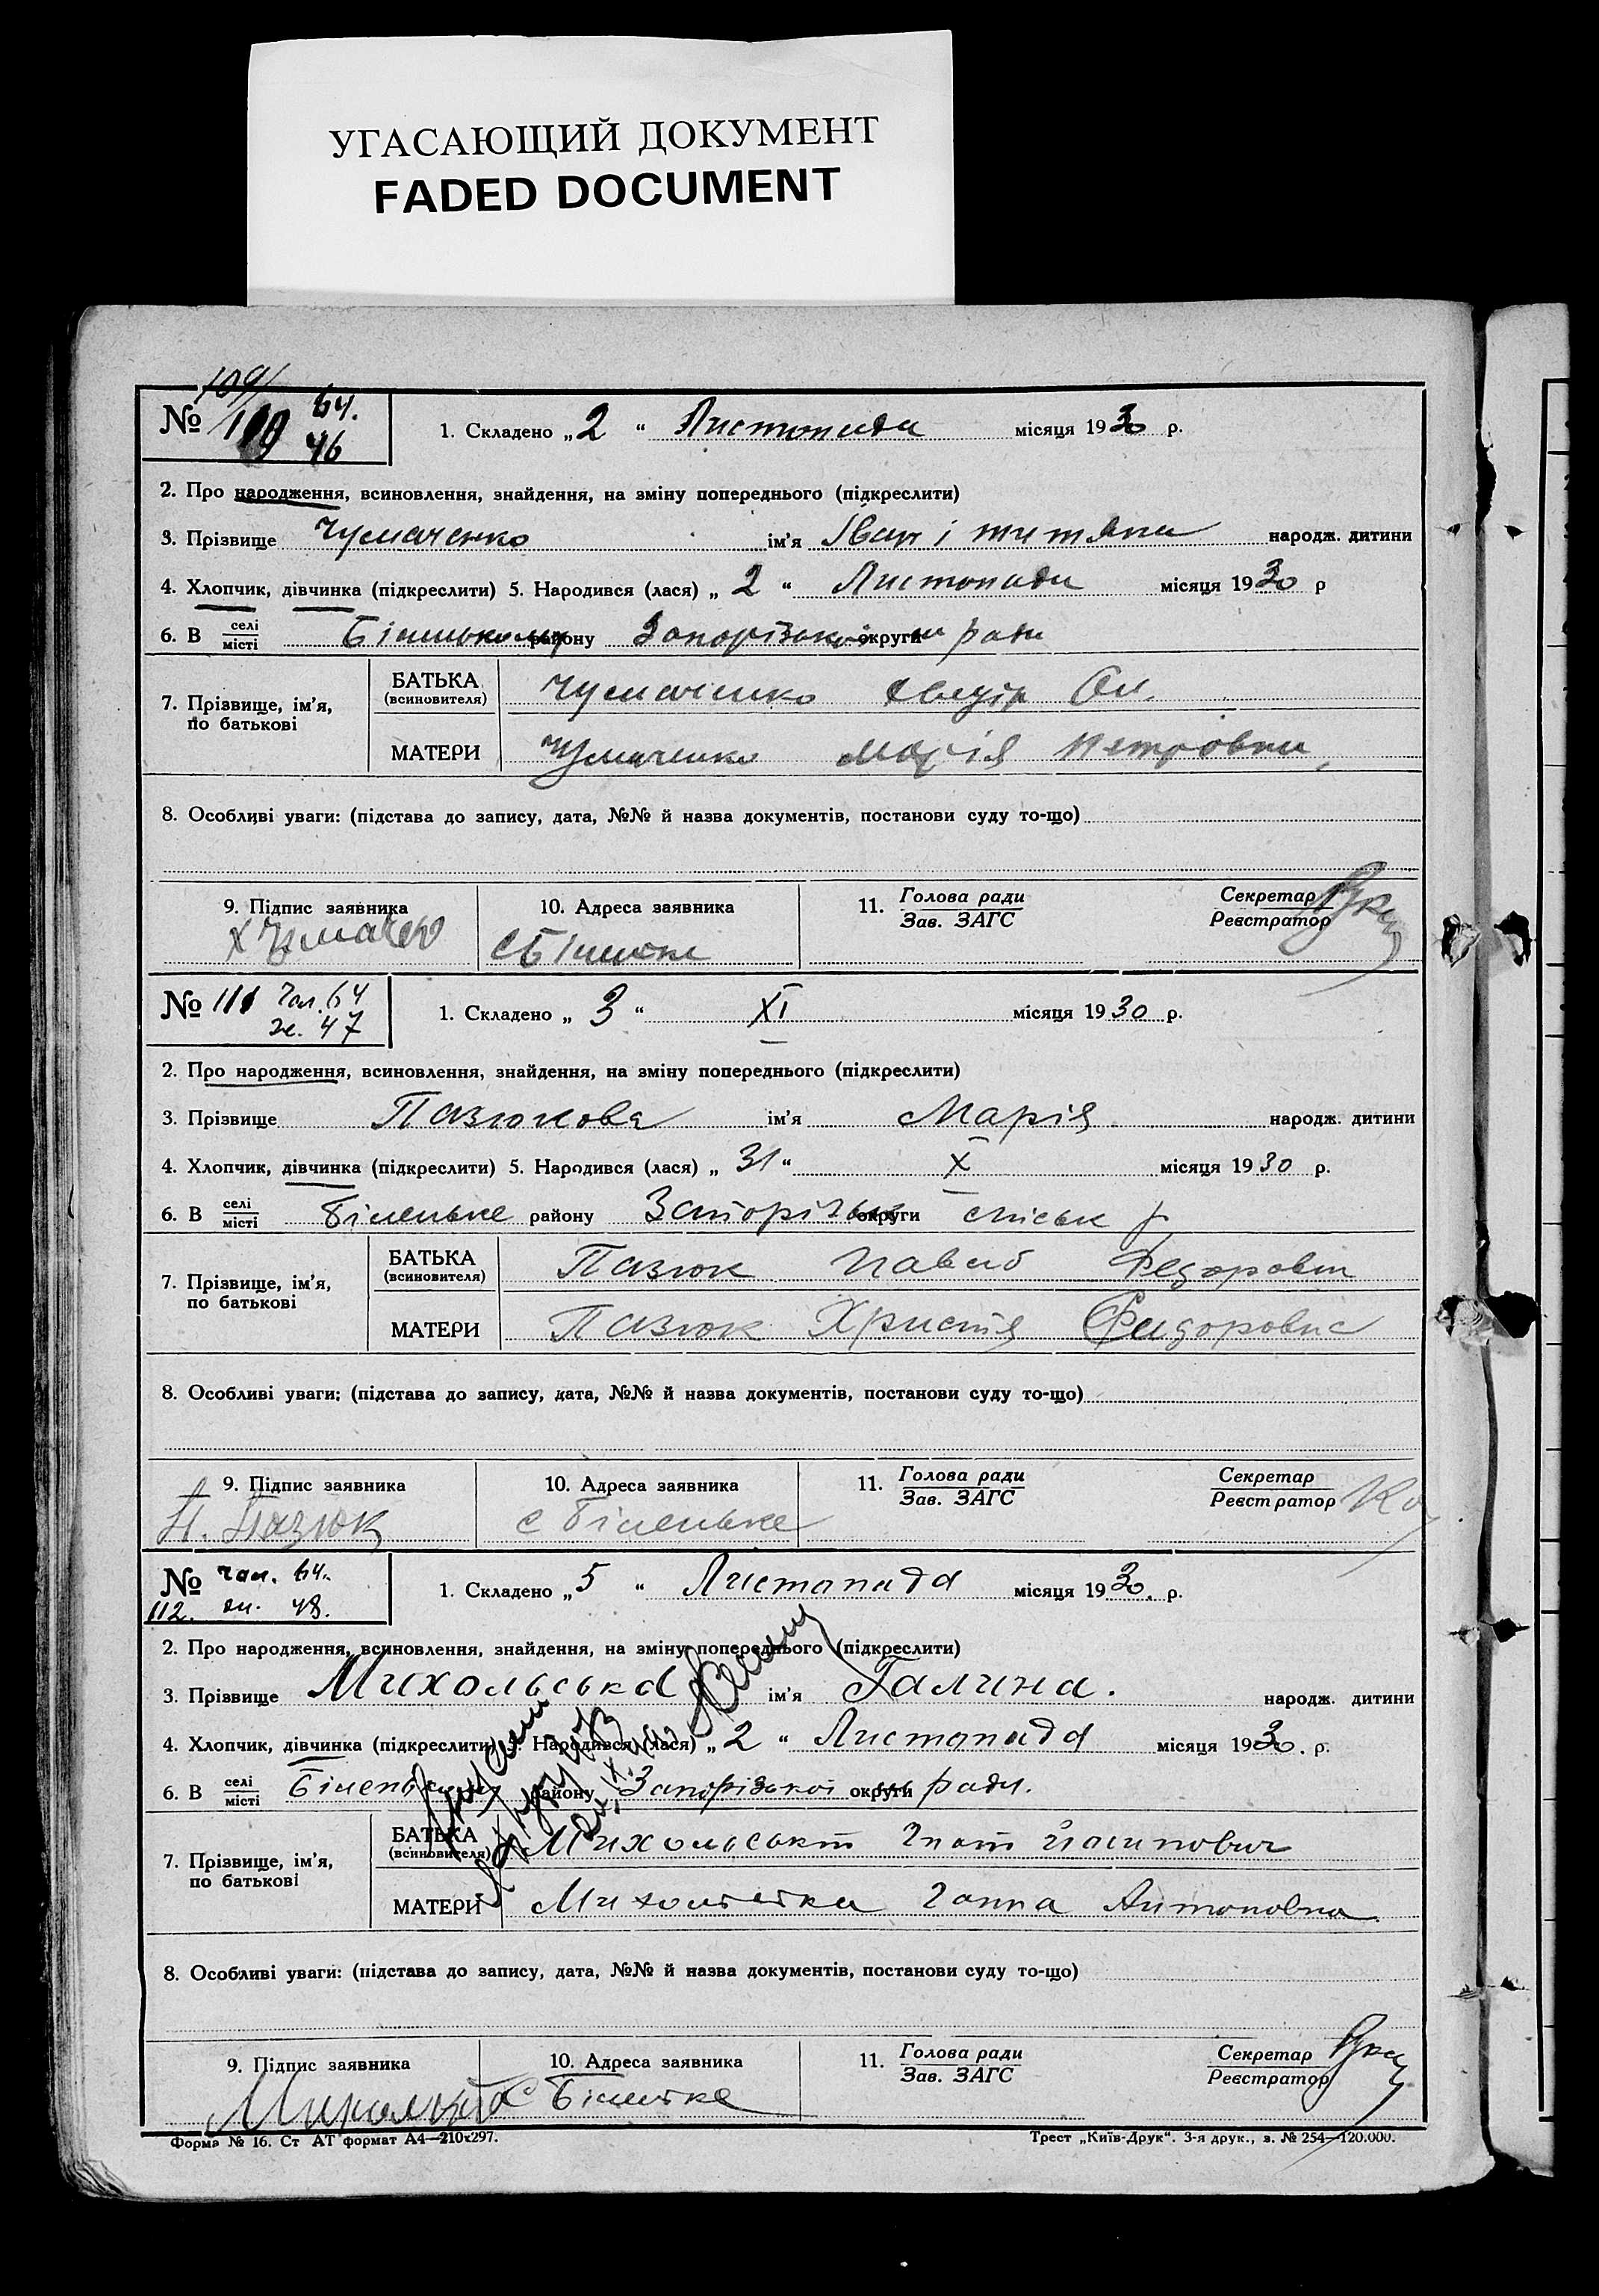 УГАСАЮЩИЙ ДОКУМЕНТ
FADED DOCUMENT
109/
№ 110 64.
46
1. Складено „2“ Листопада місяця 1930 р.
2. Про народження, всиновлення, знайдення, на зміну попереднього (підкреслити)
3. Прізвище Чумаченко ім'я Іван і Титяна народж. дитини
4. Хлопчик, дівчинка (підкреслити) 5. Народився (лася) „2“ Листопада місяця 1930 р
6. В селі/місті району Запорізької округи ради
7. Прізвище, ім'я, по батькові
БАТЬКА (всиновителя) Чумаченко
МАТЕРИ Чумаченко Марія Петровна
8. Особливі уваги: (підстава до запису, дата, №№ й назва документів, постанови суду то-що)
9. Підпис заявника 10. Адреса заявника 11. Голова ради/Зав. ЗАГС Секретар/Реєстратор
№ 111 чол. 64
ж. 47
1. Складено „3“ XI місяця 1930 р.
2. Про народження, всиновлення, знайдення, на зміну попереднього (підкреслити)
3. Прізвище Пазюкова ім'я Марія народж. дитини
4. Хлопчик, дівчинка (підкреслити) 5. Народився (лася) „31“ X місяця 1930 р.
6. В селі/місті Біленьке району Запорізьк округи міськ р
7. Прізвище, ім'я, по батькові
БАТЬКА (всиновителя) Пазюк Павло Федорович
МАТЕРИ Пазюк Христя Фидоровна
8. Особливі уваги: (підстава до запису, дата, №№ й назва документів, постанови суду то-що)
9. Підпис заявника 10. Адреса заявника 11. Голова ради/Зав. ЗАГС Секретар/Реєстратор
П. Пазюк с Біленьке
№ чол. 64.
112. жи. 48.
1. Складено „5“ Листопада місяця 1930. р.
2. Про народження, всиновлення, знайдення, на зміну попереднього (підкреслити)
3. Прізвище Михольська ім'я Галина. народж. дитини
4. Хлопчик, дівчинка (підкреслити) 5. Народився (лася) „2“ Листопада місяця 1930. р.
6. В селі/місті Біленькому району Запорізької округи ради.
7. Прізвище, ім'я, по батькові
БАТЬКА (всиновителя)
МАТЕРИ Михольська Ганна Антоновна
8. Особливі уваги: (підстава до запису, дата, №№ й назва документів, постанови суду то-що)
9. Підпис заявника 10. Адреса заявника 11. Голова ради/Зав. ЗАГС Секретар/Реєстратор
с Біленьке
Форма № 16. Ст АТ формат А4—210x297. Трест „Київ-Друк“. 3-я друк., з. № 254—120.000.